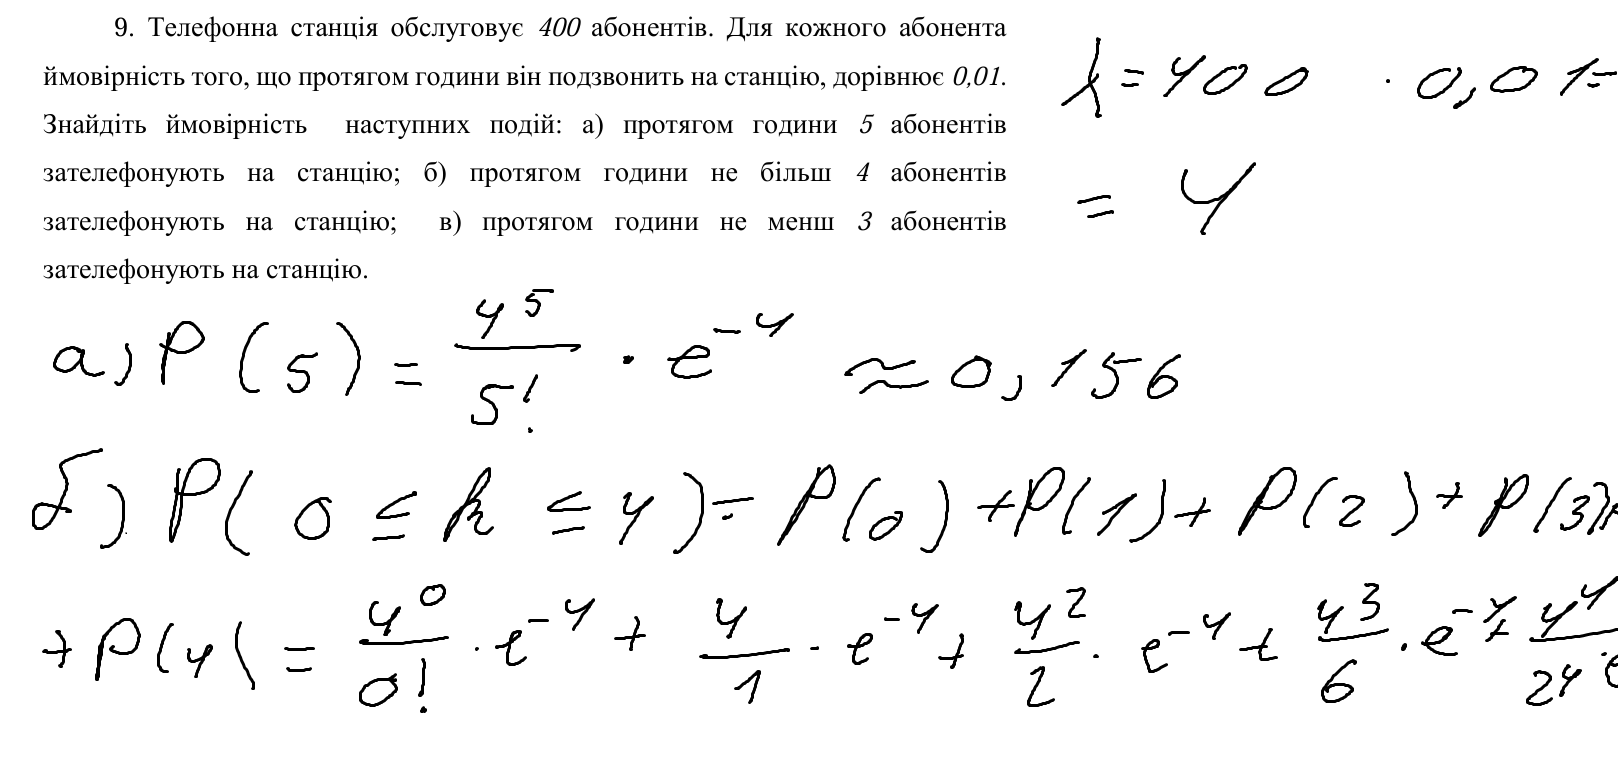 9. Телефонна станція обслуговує 400 абонентів. Для кожного абонента
ймовірність того, що протягом години він подзвонить на станцію, дорівнює 0,01.
Знайдіть ймовірність наступних подій: а) протягом години 5 абонентів
зателефонують на станцію; б) протягом години не більш 4 абонентів
зателефонують на станцію; в) протягом години не менш 3 абонентів
зателефонують на станцію.
λ = 400 · 0,01 =
= 4
а) P(5) = 4^5/5! · e^-4 ≈ 0,156
б) P(0 ≤ k ≤ 4) = P(0) + P(1) + P(2) + P(3) +
+ P(4) = 4^0/0! · e^-4 + 4/1 · e^-4 + 4^2/2 · e^-4 + 4^3/6 · e^-4 + 4^4/24 · e